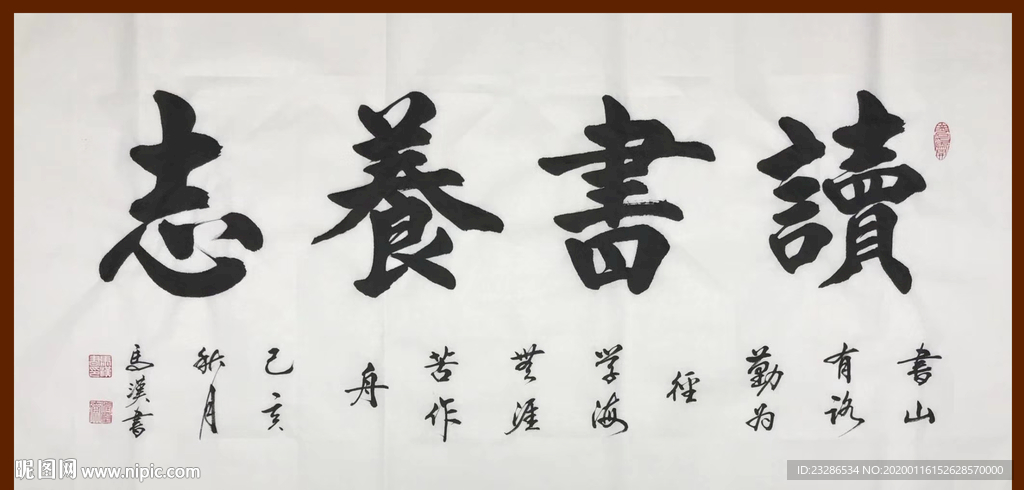 讀書養志
書山
有路
勤为
徑
学海
無涯
苦作
舟
己亥
秋月
馬漢書
昵图网 www.nipic.com
ID:23286534 NO:20200116152628570000